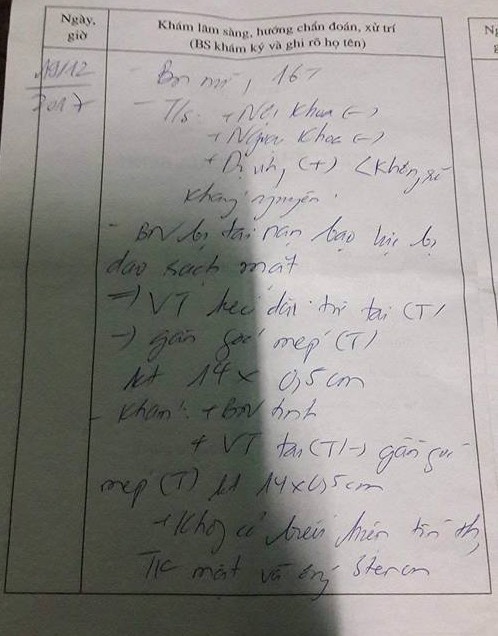 Ngày, giờ
Khám lâm sàng, hướng chẩn đoán, xử trí
(BS khám ký và ghi rõ họ tên)
19/12
2017
- BN nữ, 16T
- T/s: + Nội khoa (-)
+ Ngoại khoa (-)
+ Dị ứng (+) <không rõ
kháng nguyên
- BN bị tai nạn bạo lực bị
dao rạch mặt
=> VT kéo dài từ tai (T)
-> gần góc mép (T)
kt 14 x 0,5 cm
- Khám: + BN tỉnh
+ VT tai (T) -> gần góc
mép (T) kt 14x0,5cm
+ Không có biểu hiện tổn th,
TK mặt và ống Stenon